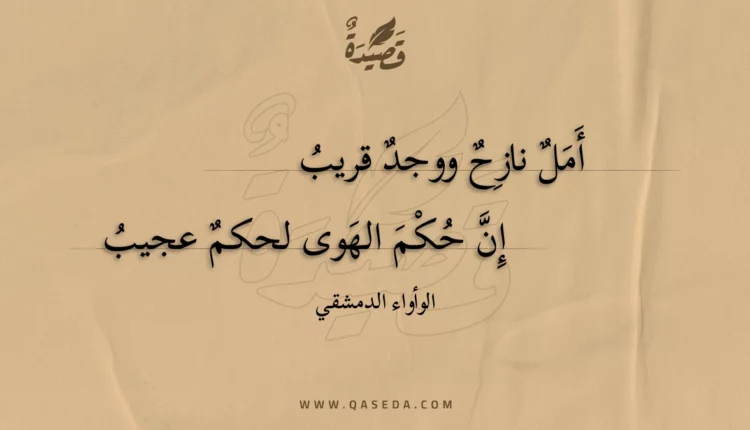 قَصِيدَةٌ
أَمَلٌ نازِحٌ ووجدٌ قريبُ
إِنَّ حُكْمَ الهَوى لحكمٌ عجيبُ
الوأواء الدمشقي
WWW.QASEDA.COM